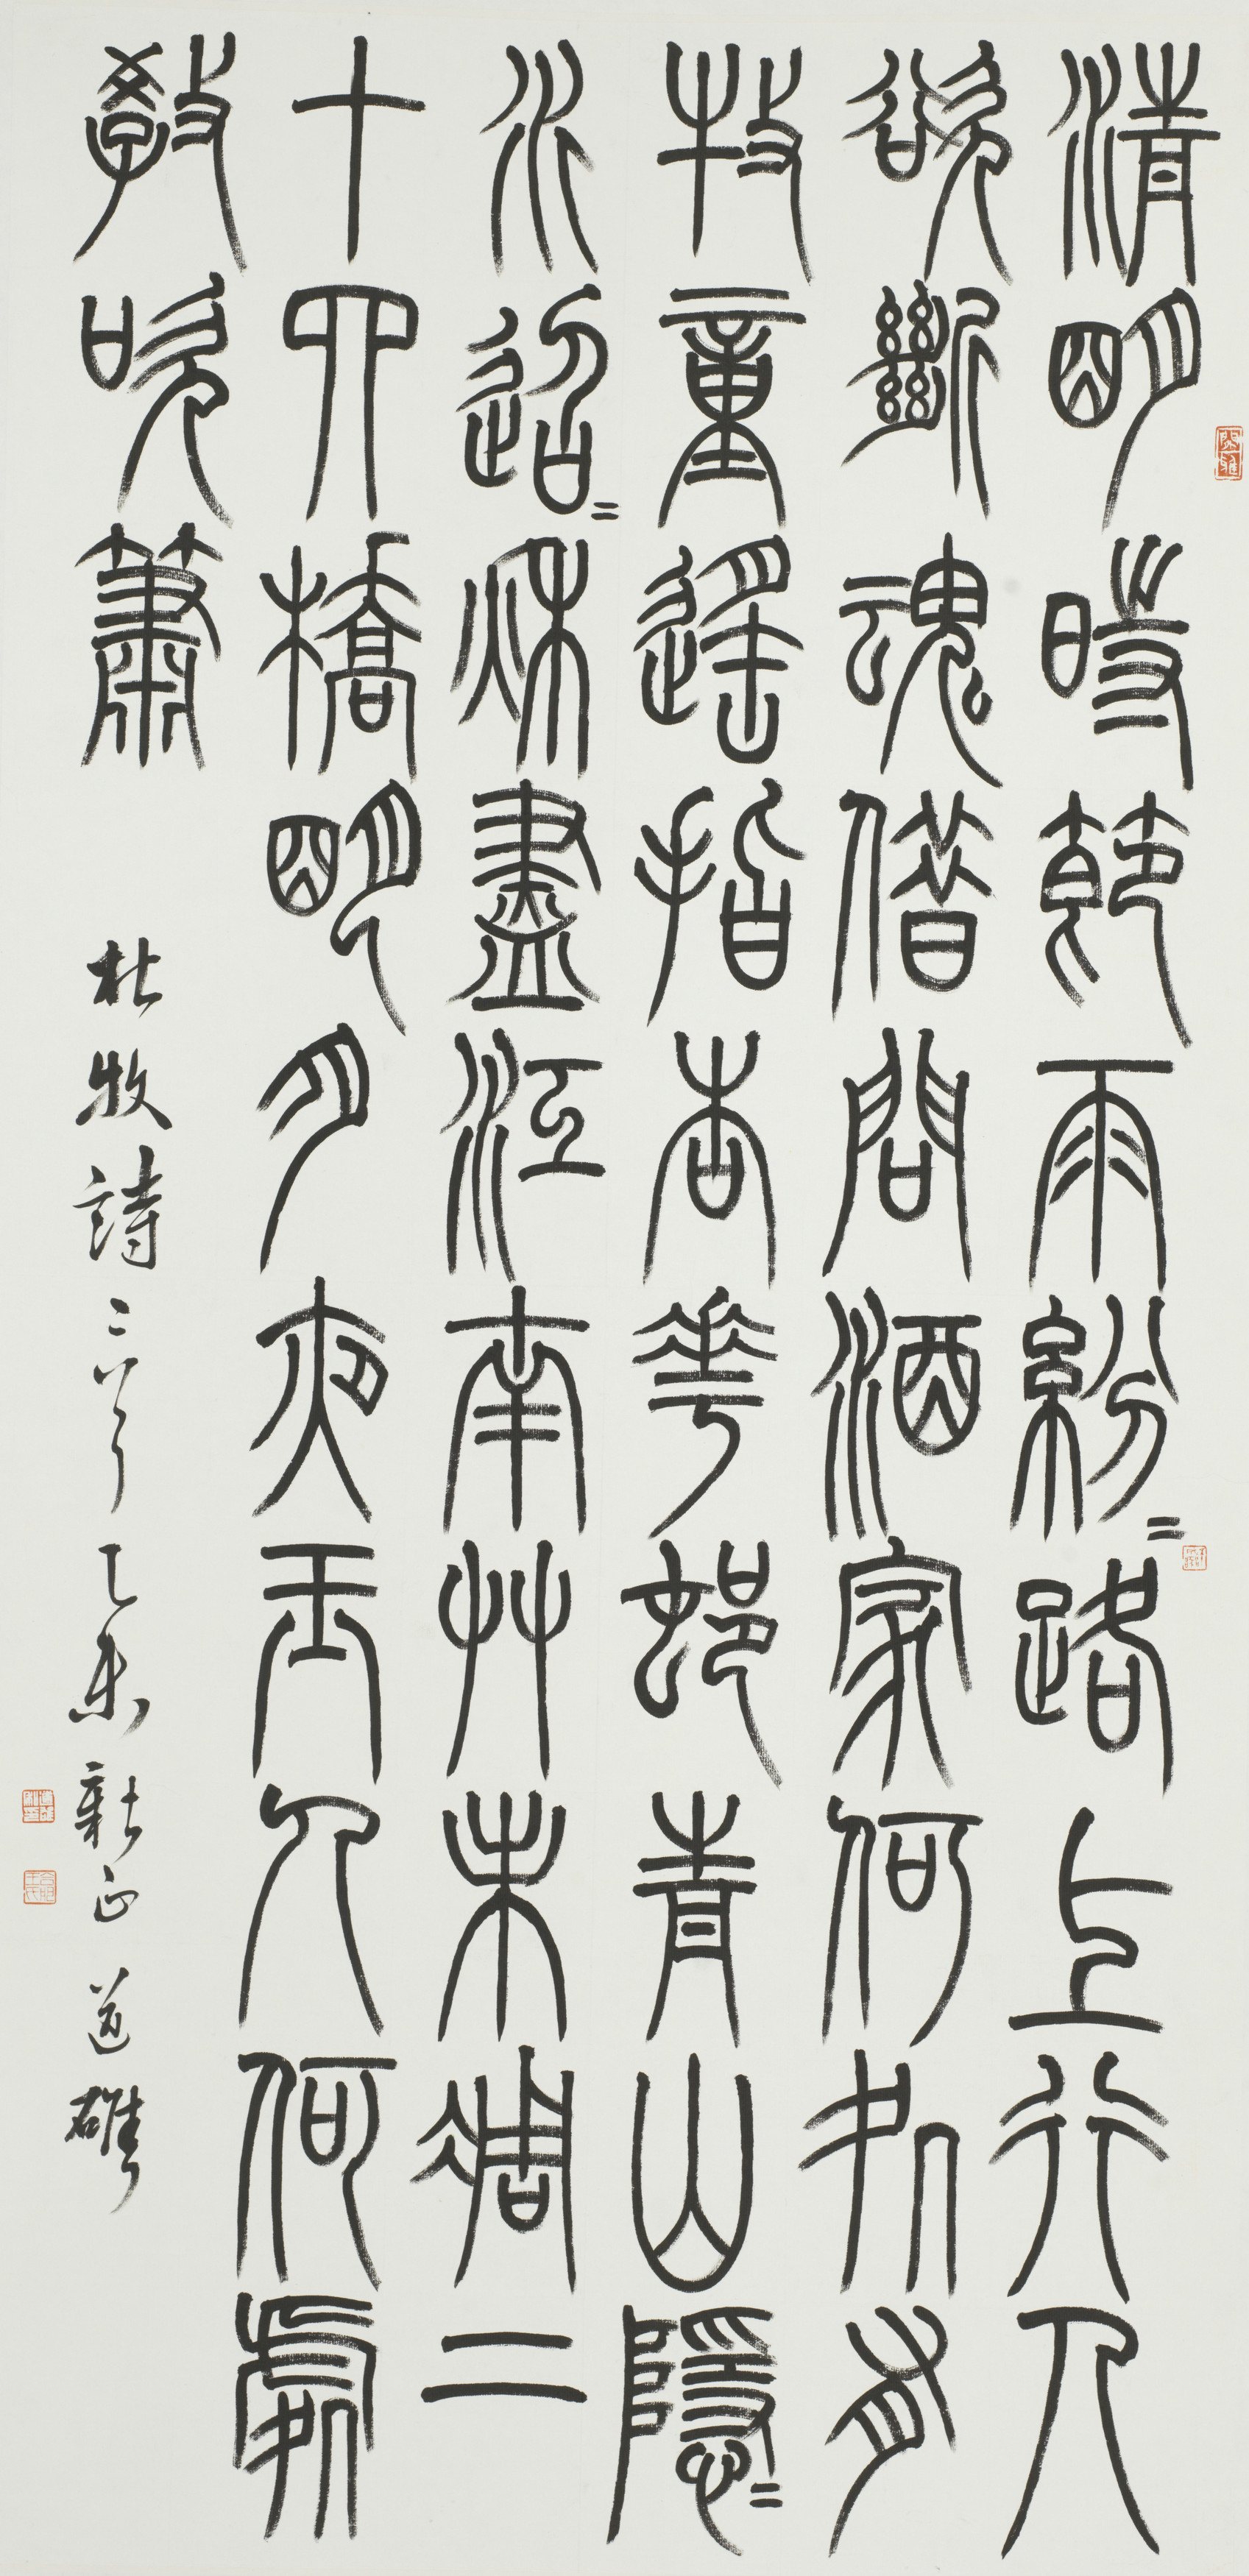 清明時節雨紛〻路上行人
欲斷魂借問酒家何処有
牧童遙指杏華邨青山隱〻
水迢〻秌盡江南艸未凋二
十四橋明月夜玉人何處
教吹簫
杜牧詩二首乙未新正道雄